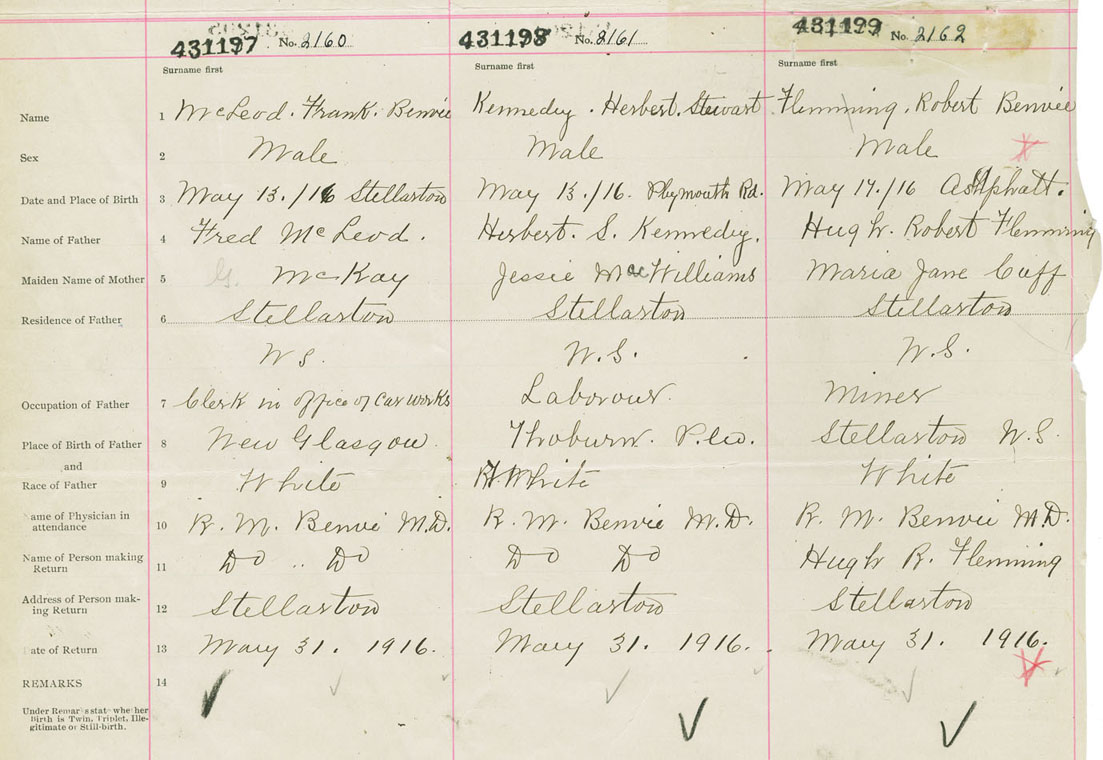 431197 No. 2160 431198 No. 2161 431199 No. 2162
Surname first Surname first Surname first
Name 1 McLeod. Frank. Benvie Kennedy. Herbert. Stewart Flemming. Robert Benvie
Sex 2 Male Male Male
Date and Place of Birth 3 May 13./16 Stellarton May 13./16. Plymouth Rd. May 17./16 Asphalt.
Name of Father 4 Fred McLeod. Herbert. S. Kennedy. Hugh. Robert Flemming
Maiden Name of Mother 5 G. McKay Jessie MacWilliams Maria Jane Cuff
Residence of Father 6 Stellarton Stellarton Stellarton
N S. N.S. N.S.
Occupation of Father 7 Clerk in office of Car works Labourer Miner
Place of Birth of Father 8 New Glasgow. Thorburn. Stellarton N.S.
and
Race of Father 9 White White White
ame of Physician in
attendance 10 R. M. Benvie M.D. R. M. Benvie M.D. R. M. Benvie M.D.
Name of Person making
Return 11 Do .. Do Do Do Hugh R. Flemming
Address of Person mak-
ing Return 12 Stellarton Stellarton Stellarton
ate of Return 13 May 31. 1916. May 31. 1916. May 31. 1916.
REMARKS 14
Under Remarks state whether
Birth is Twin, Triplet, Ille-
gitimate or Still-birth.